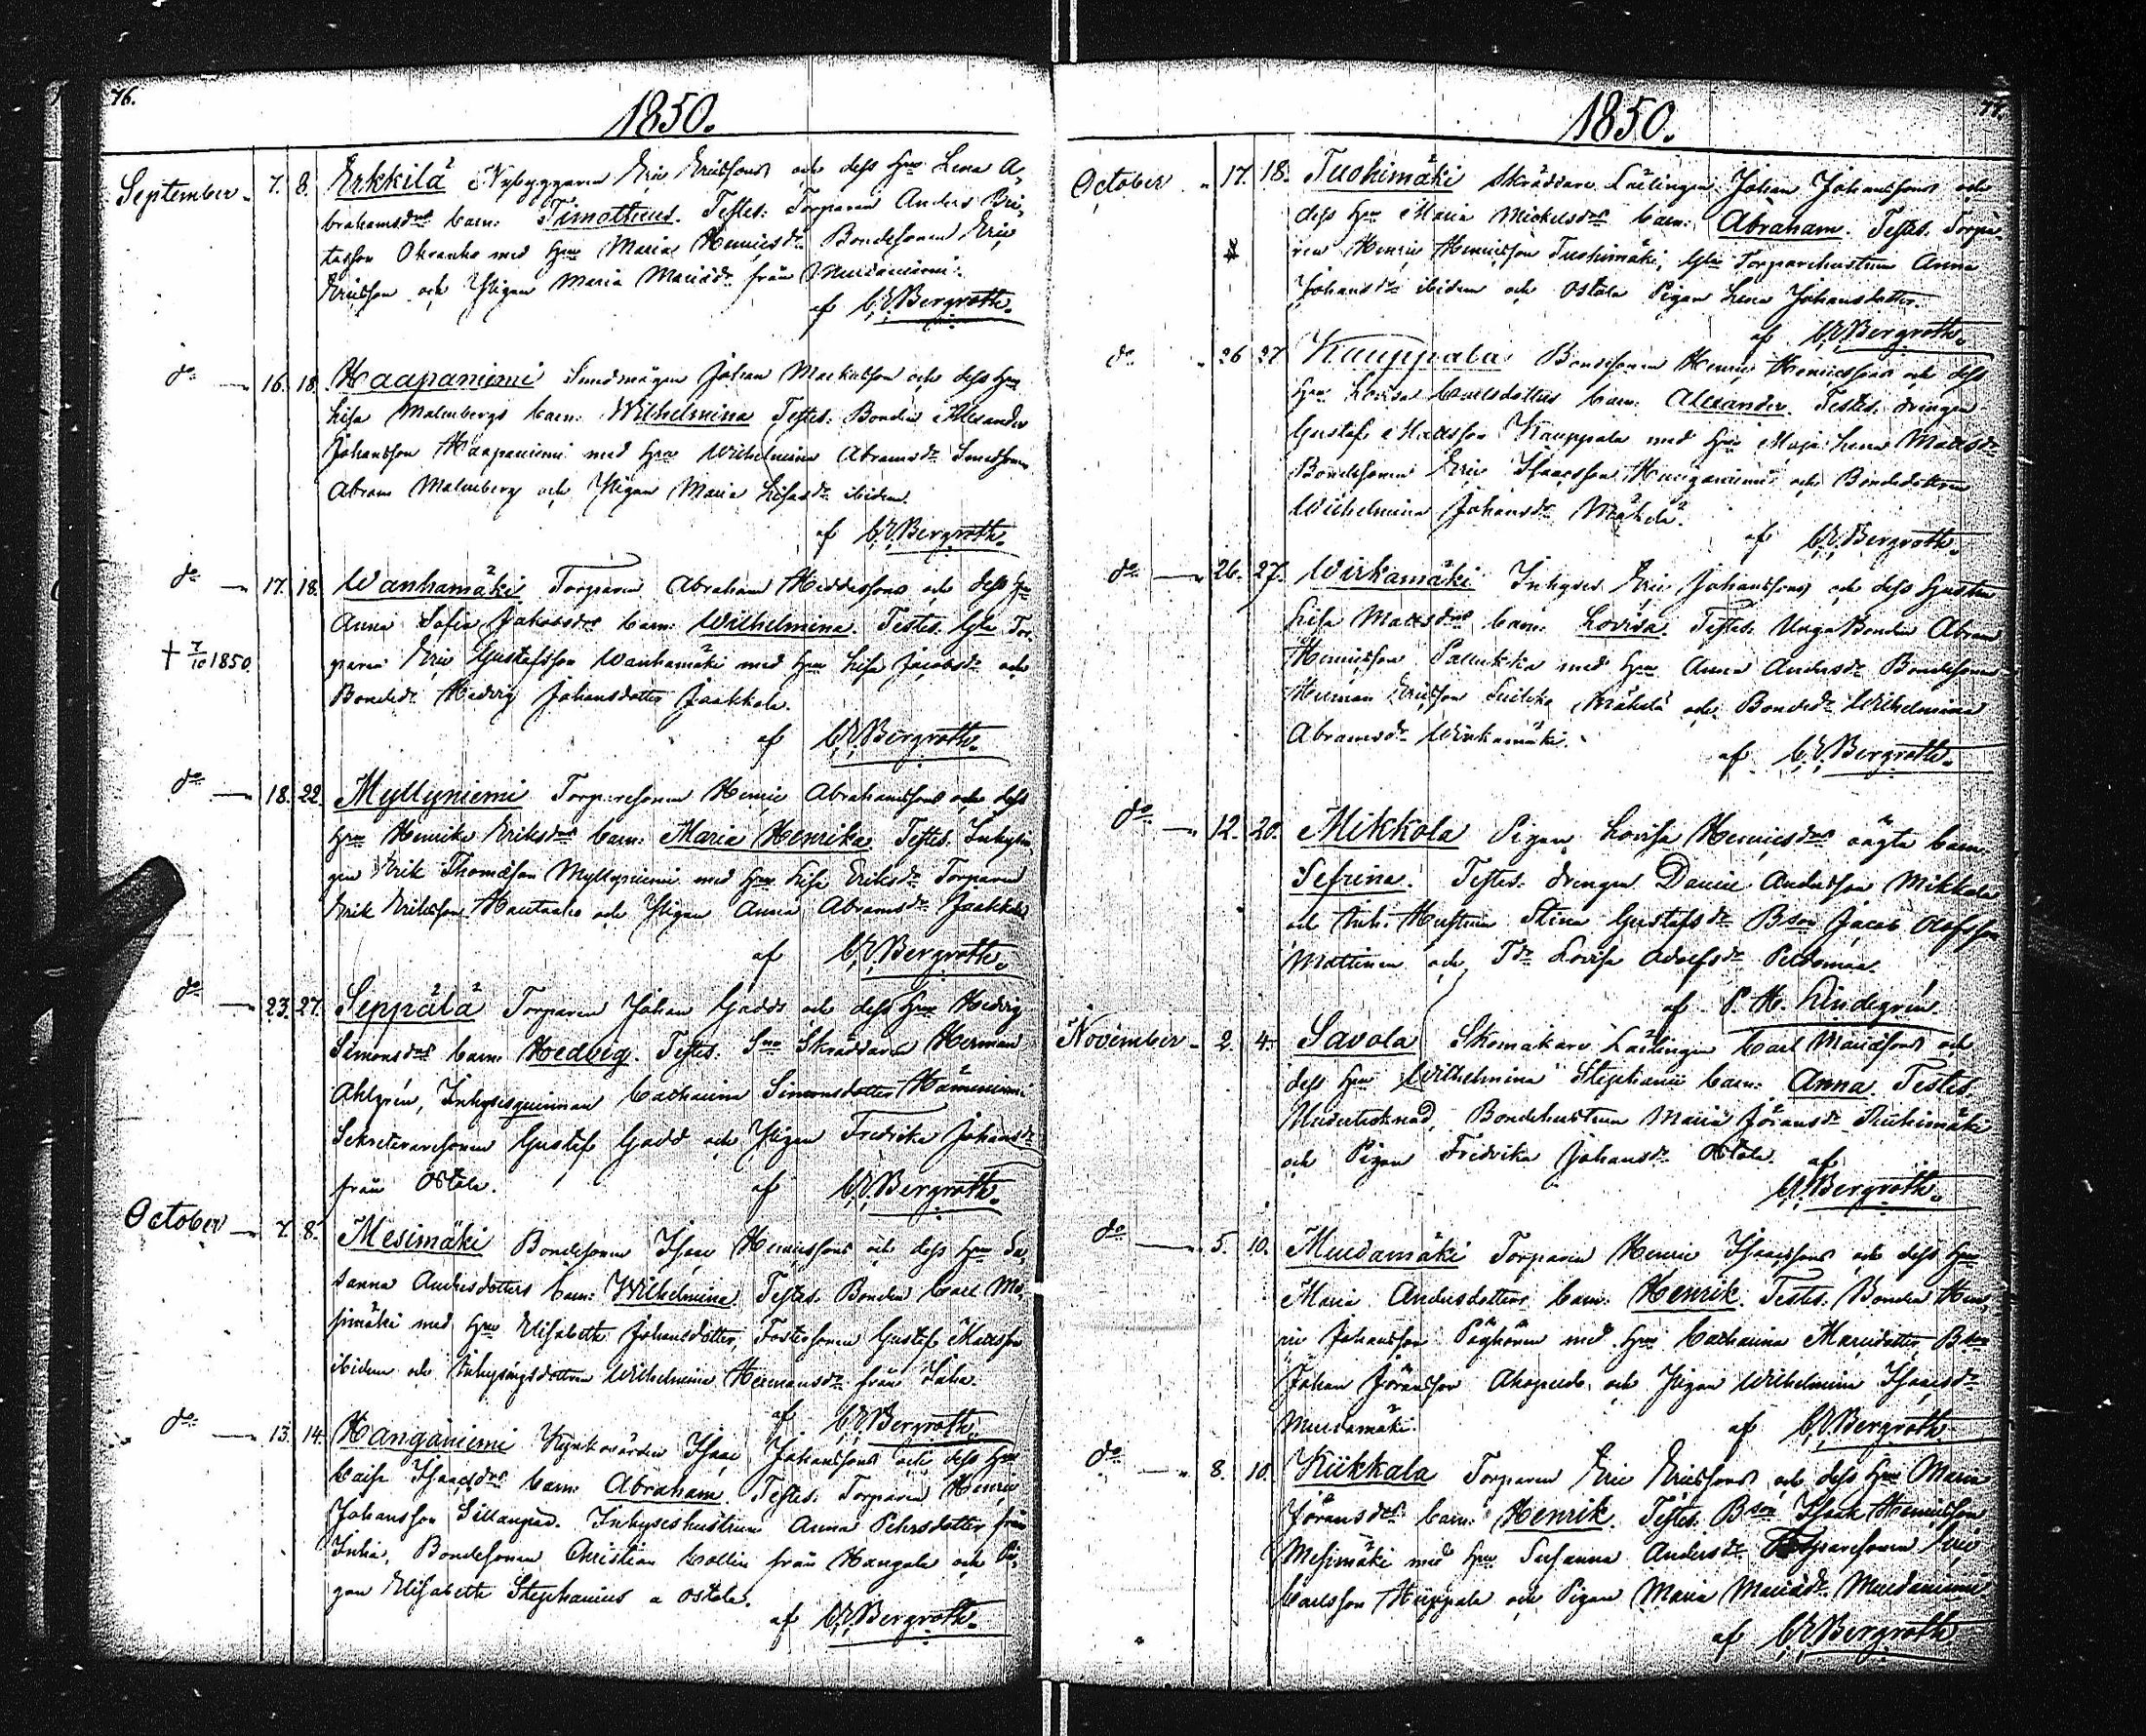 76.
1850.
September 7. 8. Erkkilä Nybyggaren Eric Ericssons och dess Hu Lena A,
brahamsdrs barn: Timotheus. Testes: Torparen Anders Bri,
tasson Okranko med Hu Maria Henricsdr Bondesonen Eric
Ericsson och Pigan Maria Mariædr från
af C.E. Bergroth.
do 16. 18. Haapaniemi Smedmågen Johan Markusson och dess Hu
Lisa Malmbergs barn: Wilhelmina Testes: Bonden Alexander
Johansson Haapaniemi med Hu Wilhelmina Abramsdr Smedsonen
Abram Malmberg och Pigan Maria Lisasdr ibidem.
af C.E. Bergroth.
do 17. 18. Wanhamäki Torparen Abraham och dess Hu
Anna Sofia Jakobsdrs barn: Wilhelmina. Testes. Gla Tor,
† 7/10 1850. paren Eric Gustafsson Wanhamäki med Hu Lisa Jacobsdr och
Bondedr Hedvig Johansdotter Jaakkola.
af C.E. Bergroth.
do 18. 22. Myllyniemi Torparesonen Henric Abrahamssons och dess
Hu Henrika Eriksdrs barn: Maria Henrika Testes. Inhysin,
gen Erik Thomasson Myllyniemi med Hu Lisa Eriksdr Torparen
Erik Eriksson Hautaaho och Pigan Anna Abramsdr Jaakkola
af C.E. Bergroth.
do 23. 27. Seppälä Torparen Johan Gadds och dess Hu Hedvig
Simonsdrs barn: Hedvig. Testes: Skräddaren Herman
Ahlgrén, Inhysesqvinnan Catharina Simonsdotter Hämeniemi
Sekreteraresonen Gustaf Gadd och Pigan Fredrika Johansdr
från Ostola. af C.E. Bergroth.
October 7. 8. Mesimäki Bondesonen Isaac Henricssons och dess Hu Su,
sanna Andersdotters barn: Wilhelmina. Testes. Bonden Carl Me,
simäki med Hu Elisabeth Johansdotter, Fostersonen Gustaf Mattsson
ibidem och Inhysingsdottren Wilhelmina Hermansdr från
af C.E. Bergroth.
do 13. 14. Hanganiemi Kyrkovärden Isaac Johanssons och dess Hu
Caisa Isaacsdrs barn: Abraham. Testes: Torparen Henric
Johansson Sillanpää. Inhyseshustrun Anna Pehrsdotter från
Inha, Bondesonen Christian Collin från Hangala och Pi,
gan Elisabeth Stephanius a Ostola.
af C.E. Bergroth.
77.
1850.
October 17. 18. Tuohimäki Skräddare Lärlingen Johan Johanssons och
dess Hu Maria Mickelsdrs barn: Abraham. Testes. Torpa,
ren Henric Henricsson Tuohimäki, Gla Torparehustrun Anna
Johansdr ibidem och Ostola Pigan Lena Johansdotter.
af C.E. Bergroth.
do 26 27 Kauppala Bondesonen Henric Henricssons och dess
Hu Lovisa Carlsdotters barn: Alexander. Testes: drengen
Gustaf Mattsson Kauppala med Hu Maja Lena Mattsdr
Bondesonen Eric Isaacsson Hanganiemi och Bondedottren
Wilhelmina Johansdr
af C.E. Bergroth.
do 26. 27. Wirkamäki Inhyses Eric Johanssons och dess Hustru
Lisa Mattsdrs barn. Lovisa. Testes: Unga Bonden Abram
Henricsson med Hu Anna Andersdr Bondesonen
Herman Ericsson och Bondedr Wilhelmina
Abramsdr Wirkamäki.
af C.E. Bergroth.
do 12. 20. Mikkola Pigan Lovisa Henricsdrs oägta barn:
Sefrina. Testes: drengen Daniel Andersson Mikkola
och Inh. Hustrun Stina Gustafsdr Bson Jacob Olofsson
Mattinen och Tdr Lovisa Adolfsdr Peltomaa.
af P. H. Lindegrén.
November 2. 4. Savola Skomakare Lärlingen Carl Mariæsons och
dess Hu Wilhelmina Stephanii barn: Anna. Testes.
Undertecknad, Bondehustrun Maria Jöransdr Riuhimäki
och Pigan Fredrika Johansdr Ostola. af
C.E. Bergroth.
do 5. 10. Muldamäki Torparen Henric Isaacssons och dess Hu
Maria Andersdotters barn: Henrik. Testes: Bonden Hen,
ric Johansson med Hu Catharina Mariædotter, Bson
Johan Jöransson och Pigan Wilhelmina Isaacsdr
Muldamäki. af C.E. Bergroth
do 8. 10. Kiikkala Torparen Eric Ericssons och dess Hu Maria
Jöransdrs barn: Henrik. Testes: Bson Isaak Henricsson
Mesimäki med Hu Susanna Andersdr Torparesonen Eric
Carlsson och Pigan Maria Mariædr
af C.E. Bergroth